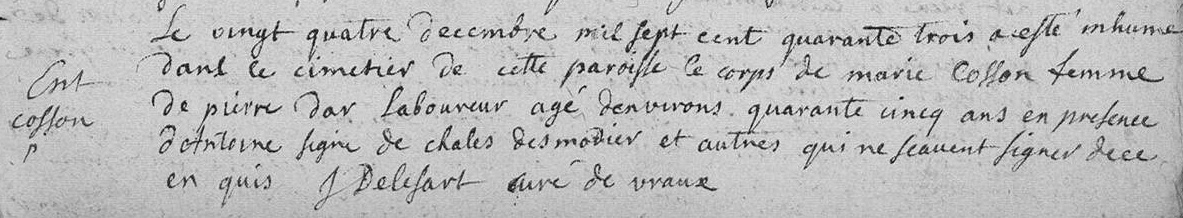 Le vingt quatre decembre mil sept cent quarante trois a esté inhumé
Ent
dans le cimetier de cette paroisse le corps de marie Cosson femme
cosson
de pierre dar Laboureur agé denvirons quarante cincq ans en presence
d'Antoine signe de chales desmodier et autres qui ne scavent signer de ce
en quis J Delessart curé de vraux